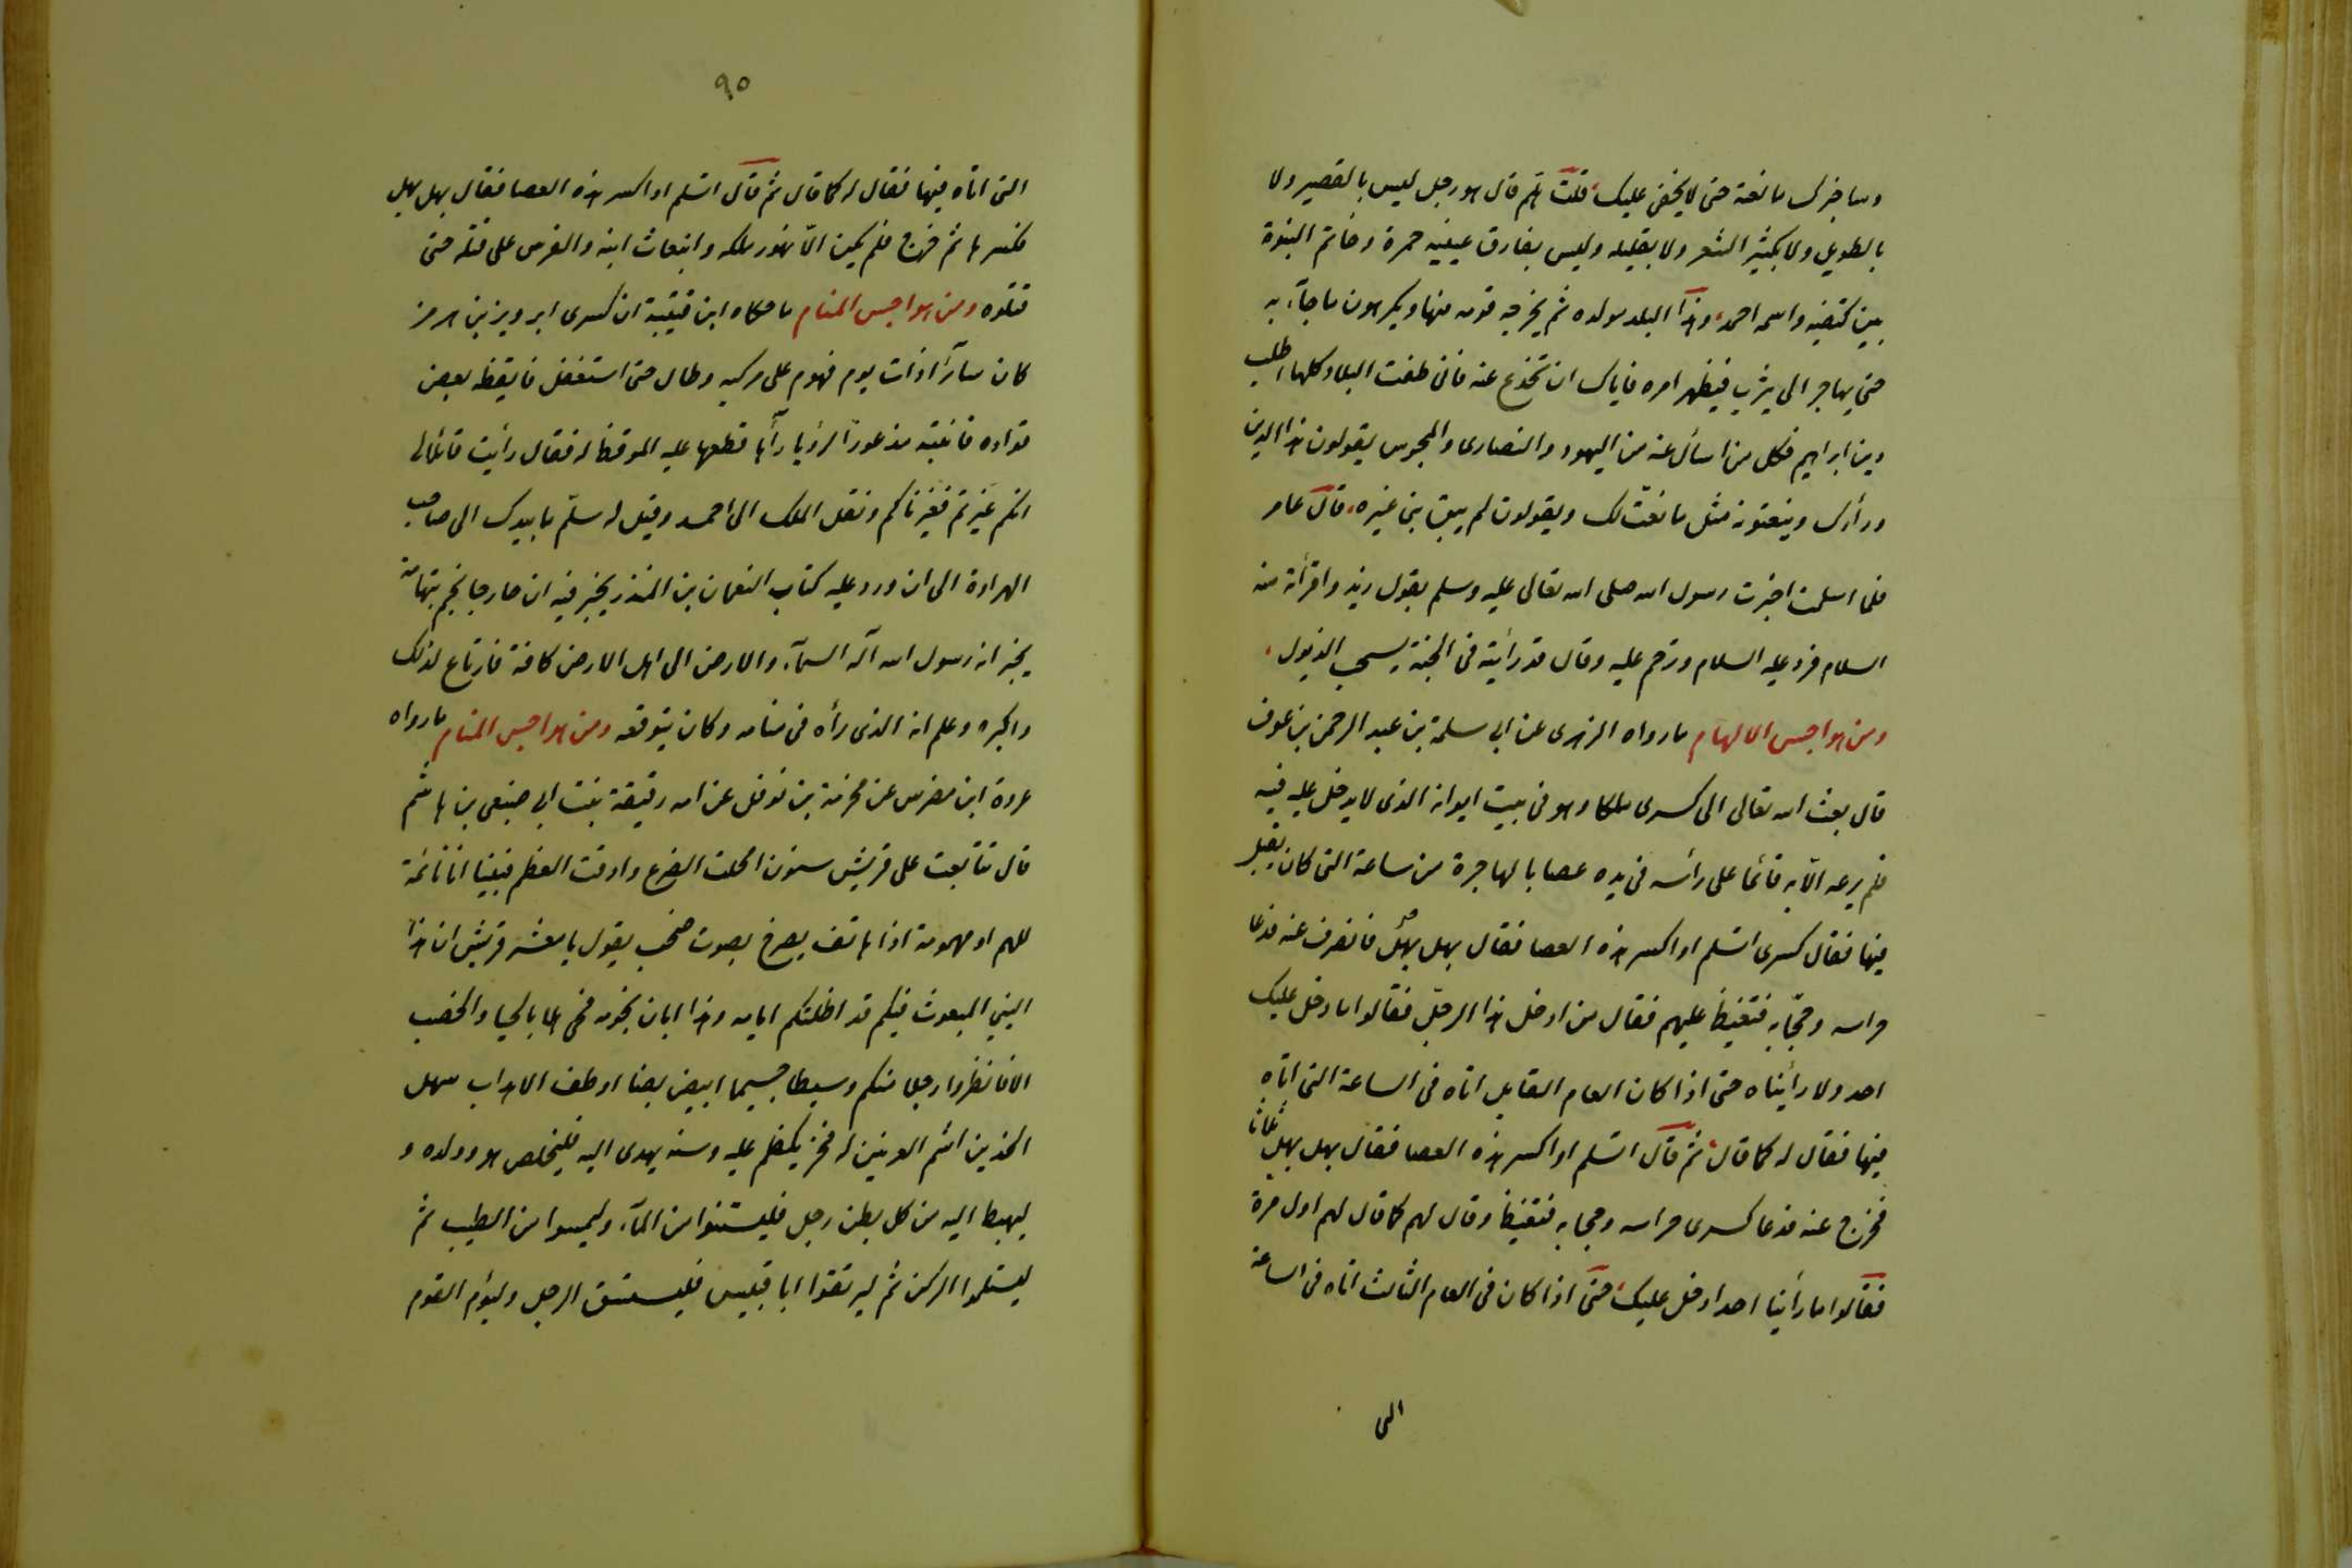 وساخبرك ما نعته حتى لا يخفى عليك قلت هلم قال هو رجل ليس بالقصير ولا
بالطويل ولا بكثير الشعر ولا بقليله وليس يفارق عينيه حمرة وخاتم النبوة
بين كتفيه واسمه احمد وهذا البلد مولده ثم يخرجه قومه منها ويكرهون ما جآء به
حتى يهاجر الى يثرب فيظهر امره فاياك ان تخدع عنه فانى طفت البلاد كلها اطلب
دين ابراهيم فكل من اسأل عنه من اليهود والنصارى والمجوس يقولون هذا الدين
ورأرك وينعتونه مثل ما نعتّ لك ويقولون لم يبق نبى غيره قال عامر
فلما اسلمت اخبرت رسول الله صلى الله تعالى عليه وسلم بقول زيد واقرأته منه
السلام فرد عليه السلام وترحم عليه وقال قد رأيته فى الجنة يسحب الذيول
ومن هواجس الالهام ما رواه الزهرى عن ابى سلمة بن عبد الرحمن بن عوف
قال بعث الله تعالى الى كسرى ملكا وهو فى بيت ايوانه الذى لا يدخل عليه فيه
فلم يرعه الّا به قائما على رأسه فى يده عصا بالهاجرة من ساعة التى كان يقيل
فيها فقال كسرى اتسلم او اكسر هذه العصا فقال بهل بهل فانصرف عنه فدعا
حراسه وحجّابه فتغيظ عليهم فقال من ادخل هذا الرجل فقالوا ما دخل عليك
احد ولا رأيناه حتى اذا كان العام القابل اتاه فى الساعة التى اتاه
فيها فقال له كما قال ثم قال اتسلم او اكسر هذه العصا فقال بهل بهل ثلاثا
فخرج عنه فدعا كسرى حراسه وحجابه فتغيظ وقال لهم كما قال لهم اول مرة
فقالوا ما رأينا احدا دخل عليك حتى اذا كان فى العام الثالث اتاه فى الساعة
الى
٩٥
التى اتاه فيها فقال له كما قال ثم قال اتسلم او اكسر هذه العصا فقال بهل بهل
فكسرها ثم خرج فلم يكن الّا تهور ملكه وانبعاث ابنه والفرس على قتله حتى
قتلوه ومن هواجس المنام ما حكاه ابن قتيبة ان كسرى ابرويز بن هرمز
كان سائرا ذات يوم فهوم على مركبه وطال حتى استغفل فايقظه بعض
قواده فانتبه مذعورا لرؤيا رآها قطعها عليه الموقظ له فقال رأيت قائلا لى
انكم غيرتم فغيرناكم ونقل الملك الى احمد وقيل له سلّم ما بيدك الى صاحب
الهراوة الى ان ورد عليه كتاب النعمان بن المنذر يخبر فيه ان خارجا نجم بتهامة
يخبر انه رسول الله اله السمآء والارض الى اهل الارض كافة فارتاع لذلك
واكبره وعلم انه الذى رأه فى منامه وكان يتوقعه ومن هواجس المنام ما رواه
عروة ابن مضرس عن مخرمة بن نوفل عن امه رقيقة بنت ابى صيفى بن هاشم
قال تتابعت على قريش سنون اقحلت الضرع وادقت العظم فبينا انا نائمة
للهم او مهمومة اذا هاتف يصرخ بصوت صخب يقول يا معشر قريش ان هذا
النبي المبعوث فيكم قد اظلتكم ايامه وهذا ابان نجومه فحى هلا بالحيا والخصب
الا فانظروا رجلا منكم وسيطا جسيما ابيض بضا اوطف الاهداب سهل
الخدين اشم العرنين له فخر يكظم عليه وسنة يهدى اليه فليخلص هو وولده و
ليهبط اليه من كل بطن رجل فليستنوا من المآء وليمسوا من الطيب ثم
ليستلموا الركن ثم ليرتقوا ابا قبيس فليستسق الرجل وليؤم القوم